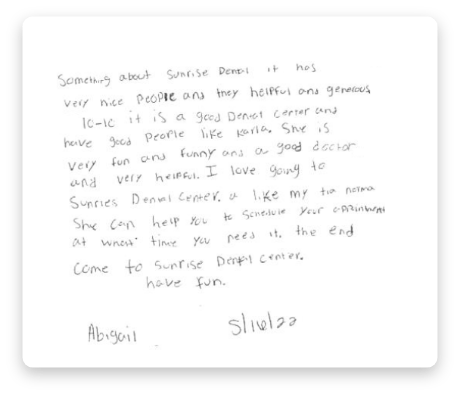 Something about Sunrise Dental it has
very nice people and they helpful and generous
it is a good Dental Center and
have good people like Karla. She is
very fun and funny and a good doctor
and very helpful. I love going to
Sunries Dental Center. a like my tia norma
She can help you to schedule your
at what time you need it. the end
Come to Sunrise Dental Center.
have fun.
Abigail
5/16/22